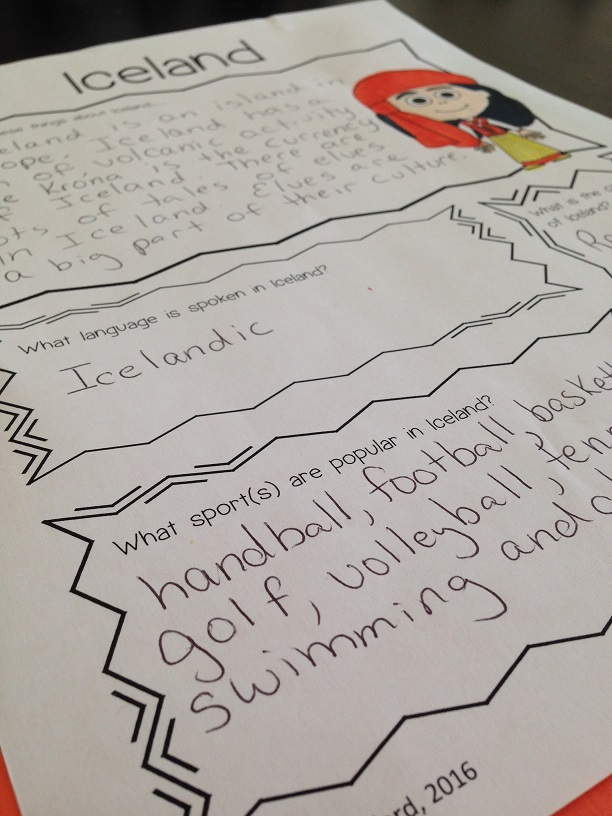 Iceland
things about Iceland...
eland is an island in
ope. Iceland has a
of volcanic activity
e Krona is the currency
f Iceland There are
ots of tales of elves
in Iceland Elves are
a big part of their culture.
What is the
of Iceland?
What language is spoken in Iceland?
Icelandic
What sport(s) are popular in Iceland?
handball, football, basket
golf, volleyball, tenn
swimming and
rd, 2016